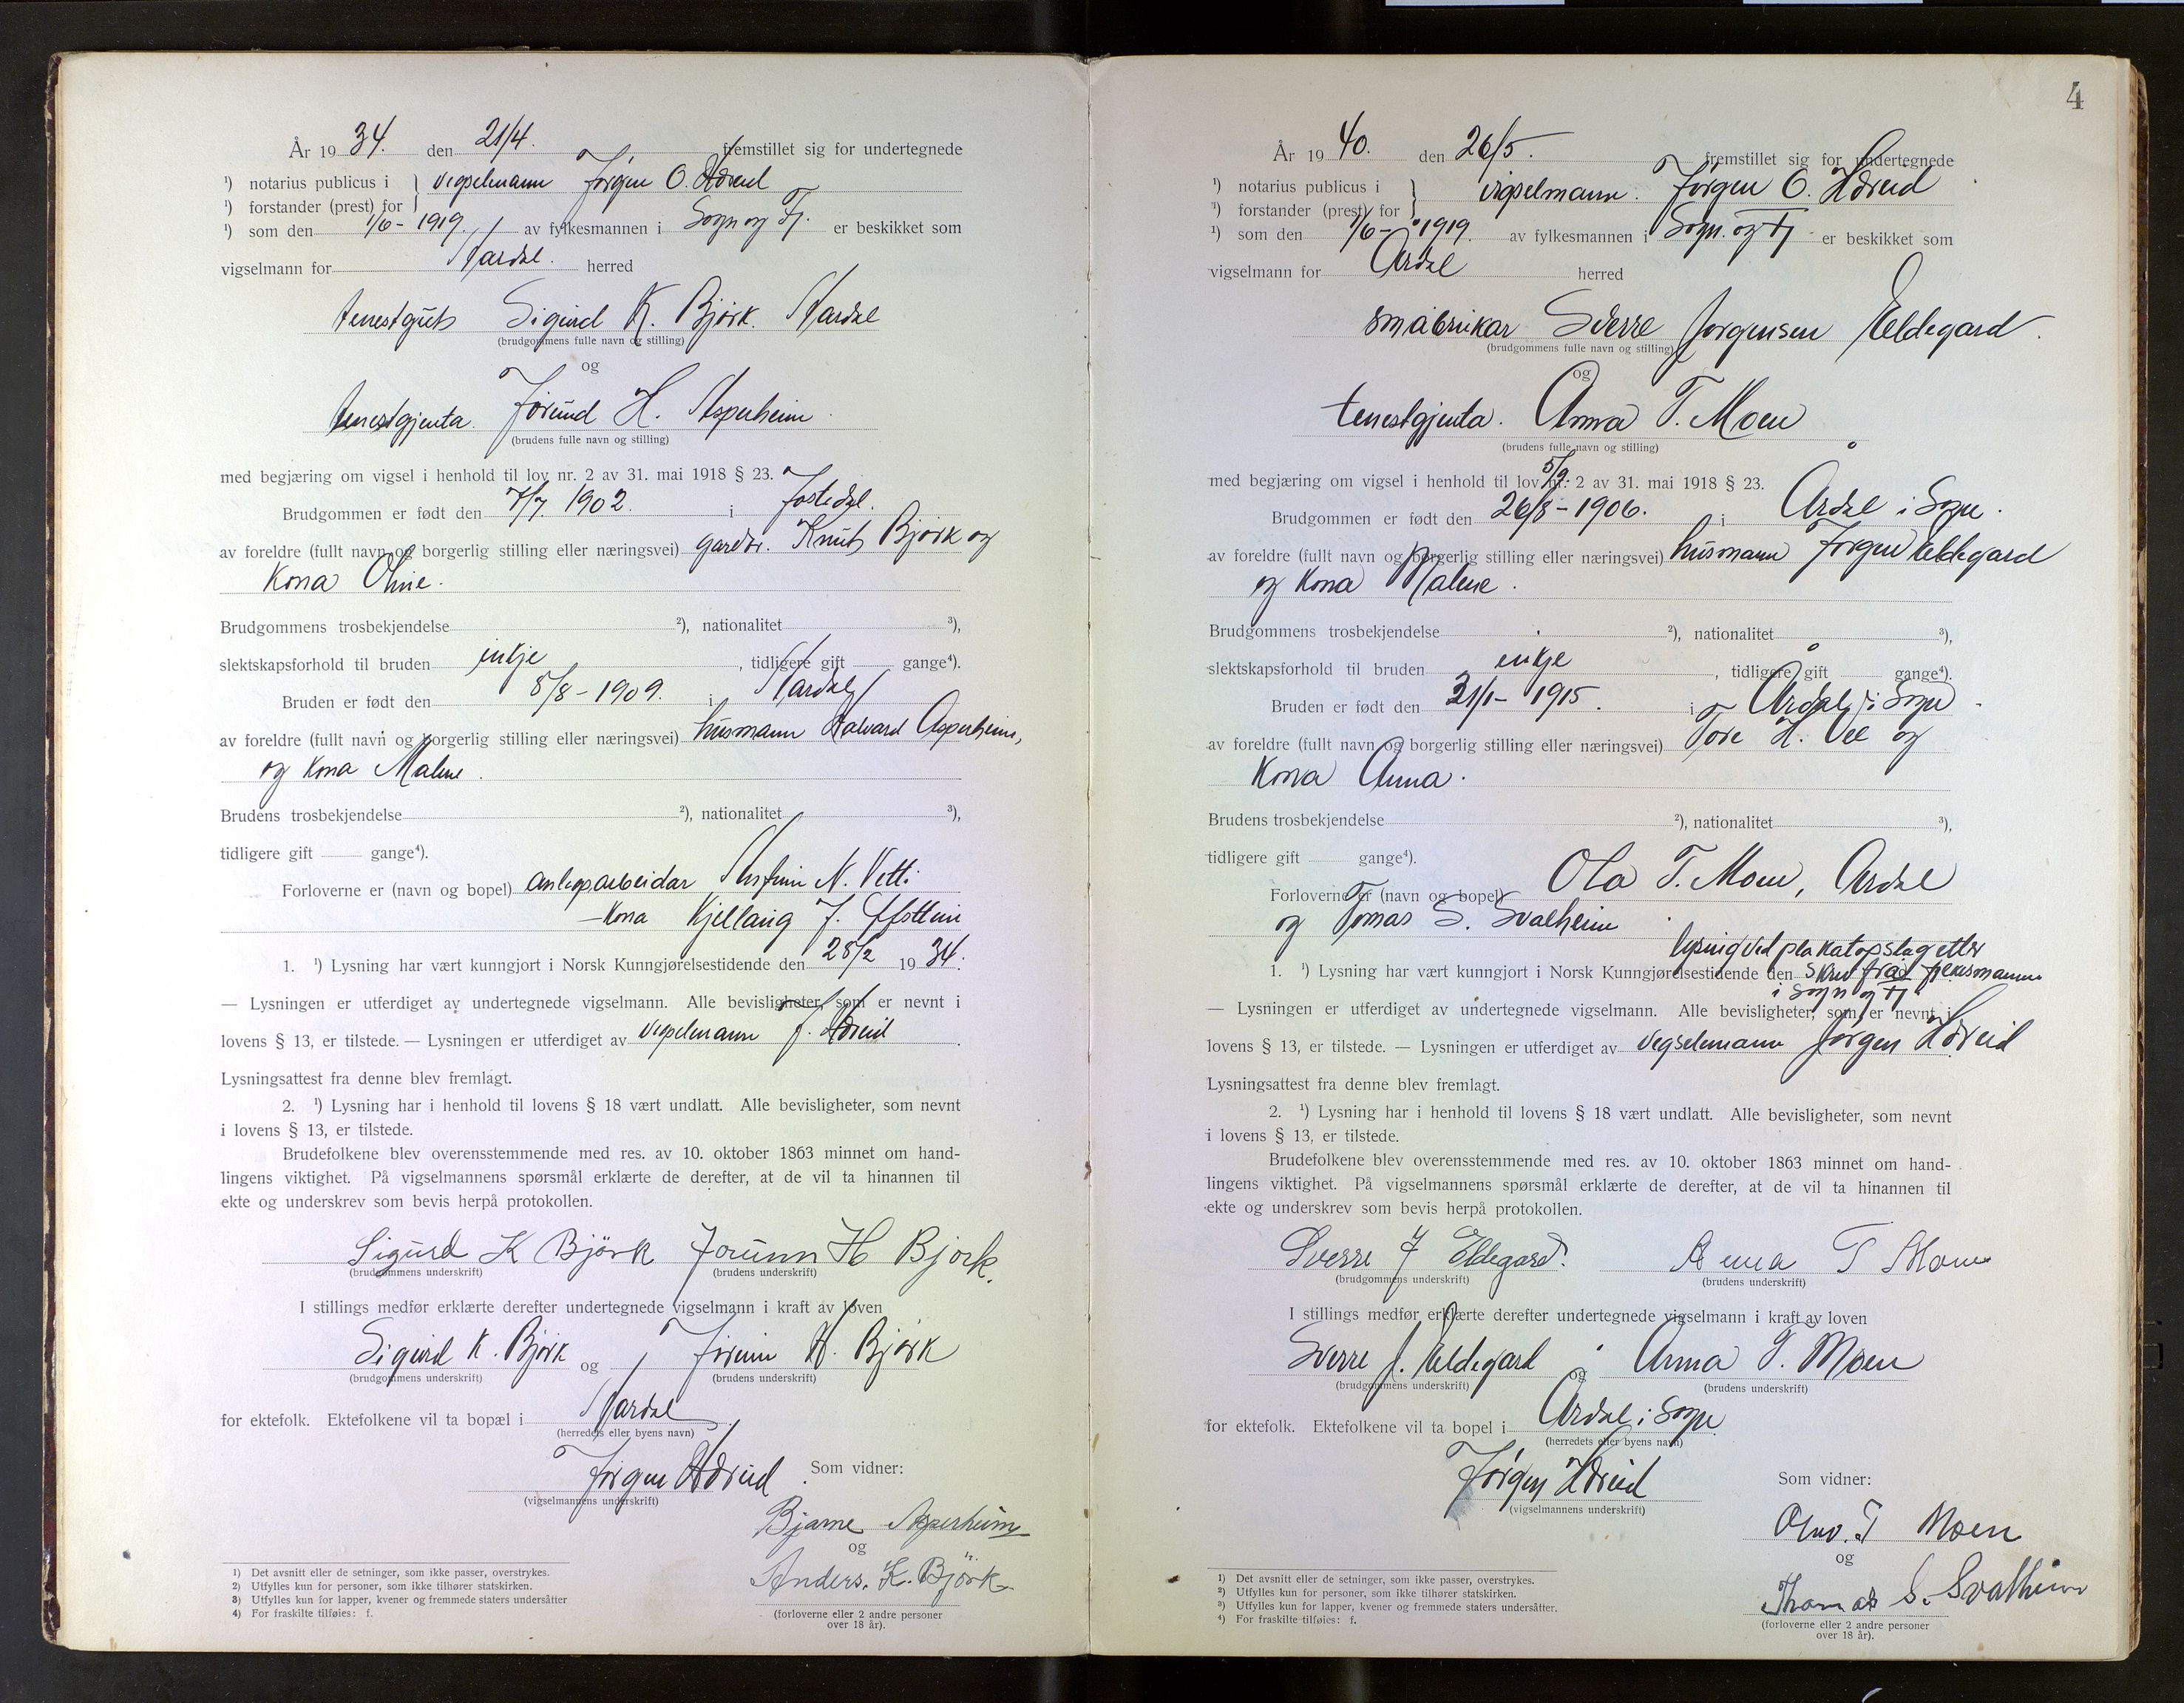 År 19 34. den 21/4. fremstillet sig for undertegnede
¹) notarius publicus i } vigselmann Jørgen O. Hæreid
¹) forstander (prest) for
¹) som den 1/6 - 1919. av fylkesmannen i Sogn og Fj. er beskikket som
vigselmann for Aardal. herred
tenestgut Sigurd K. Bjørk. Aardal
(brudgommens fulle navn og stilling)
og
tenestgjenta. Jorund H. Asperheim.
(brudens fulle navn og stilling)
med begjæring om vigsel i henhold til lov nr. 2 av 31. mai 1918 § 23.
Brudgommen er født den 7/7 1902. i Jostedal.
av foreldre (fullt navn og borgerlig stilling eller næringsvei) gardbr. Knut Bjørk og
Kona Oline.
Brudgommens trosbekjendelse ²), nationalitet ³),
slektskapsforhold til bruden inkje, tidligere gift gange⁴).
Bruden er født den 8/8 - 1909. i Aardal
av foreldre (fullt navn og borgerlig stilling eller næringsvei) husmann Halvard Asperheim,
og Kona Malene.
Brudens trosbekjendelse ²), nationalitet ³),
tidligere gift gange⁴).
Forloverne er (navn og bopel) anlegsarbeidar N. Vetti
- Kona Kjellaug J.
1. ¹) Lysning har vært kunngjort i Norsk Kunngjørelsestidende den 28/2 19 34.
— Lysningen er utferdiget av undertegnede vigselmann. Alle bevisligheter, som er nevnt i
lovens § 13, er tilstede. — Lysningen er utferdiget av vigselmann J. Hæreid.
Lysningsattest fra denne blev fremlagt.
2. ¹) Lysning har i henhold til lovens § 18 vært undlatt. Alle bevisligheter, som nevnt
i lovens § 13, er tilstede.
Brudefolkene blev overensstemmende med res. av 10. oktober 1863 minnet om hand-
lingens viktighet. På vigselmannens spørsmål erklærte de derefter, at de vil ta hinannen til
ekte og underskrev som bevis herpå protokollen.
Sigurd K Björk Jorunn H Bjork.
(brudgommens underskrift) (brudens underskrift)
I stillings medfør erklærte derefter undertegnede vigselmann i kraft av loven
Sigurd K. Bjørk og Jorunn H. Bjørk
(brudgommens underskrift) (brudens underskrift)
for ektefolk. Ektefolkene vil ta bopæl i Aardal
(herredets eller byens navn)
Jørgen Hæreid Som vidner:
(vigselmannens underskrift)
Bjarne Asperheim
og
Anders. K. Björk
(forloverne eller 2 andre personer
over 18 år).
1) Det avsnitt eller de setninger, som ikke passer, overstrykes.
2) Utfylles kun for personer, som ikke tilhører statskirken.
3) Utfylles kun for lapper, kvener og fremmede staters undersåtter
4) For fraskilte tilføies: f.
4
År 19 40. den 26/5. fremstillet sig for undertegnede
¹) notarius publicus i } vigselmann. Jørgen O. Hæreid
¹) forstander (prest) for
¹) som den 1/6 - 1919. av fylkesmannen i Sogn. og Fj er beskikket som
vigselmann for Årdal herred
småbrukar Sverre Jørgensen Eldegard.
(brudgommens fulle navn og stilling)
og
tenestgjenta. Anna T. Moen
(brudens fulle navn og stilling)
med begjæring om vigsel i henhold til lov nr. 2 av 31. mai 1918 § 23.
5/9.
Brudgommen er født den 26/8 - 1906. i Årdal i Sogn.
av foreldre (fullt navn og borgerlig stilling eller næringsvei) husmann Jørgen Eldegard
og Kona Malene.
Brudgommens trosbekjendelse ²), nationalitet ³),
slektskapsforhold til bruden inkje, tidligere gift gange⁴).
Bruden er født den 21/1 - 1915. i Årdal i Sogn
av foreldre (fullt navn og borgerlig stilling eller næringsvei) Tore H. Vee og
Kona Anna.
Brudens trosbekjendelse ²), nationalitet ³),
tidligere gift gange⁴).
Forloverne er (navn og bopel) Ola T. Moen, Årdal
og Tomas S. Svalheim.
lysnig ved plakatopslag etter
1. ¹) Lysning har vært kunngjort i Norsk Kunngjørelsestidende den skriv frå fylkesmannen
i Sogn og Fj
— Lysningen er utferdiget av undertegnede vigselmann. Alle bevisligheter, som er nevnt i
lovens § 13, er tilstede. — Lysningen er utferdiget av vegselmann Jørgen Hæreid
Lysningsattest fra denne blev fremlagt.
2. ¹) Lysning har i henhold til lovens § 18 vært undlatt. Alle bevisligheter, som nevnt
i lovens § 13, er tilstede.
Brudefolkene blev overensstemmende med res. av 10. oktober 1863 minnet om hand-
lingens viktighet. På vigselmannens spørsmål erklærte de derefter, at de vil ta hinannen til
ekte og underskrev som bevis herpå protokollen.
Sverre J Eldegard. Anna T Moen
(brudgommens underskrift) (brudens underskrift)
I stillings medfør erklærte derefter undertegnede vigselmann i kraft av loven
Sverre J. Eldegard og Anna T. Moen
(brudgommens underskrift) (brudens underskrift)
for ektefolk. Ektefolkene vil ta bopel i Årdal i Sogn
(herredets eller byens navn)
Jørgen Hæreid Som vidner:
(vigselmannens underskrift)
Olav. T Moen
og
Thomas S. Svalheim
(forloverne eller 2 andre personer
over 18 år).
1) Det avsnitt eller de setninger, som ikke passer, overstrykes.
2) Utfylles kun for personer, som ikke tilhører statskirken.
3) Utfylles kun for lapper, kvener og fremmede staters undersåtter.
4) For fraskilte tilføies: f.